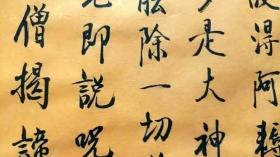 得阿耨
多是大神
能除一切
即說咒
僧揭諦